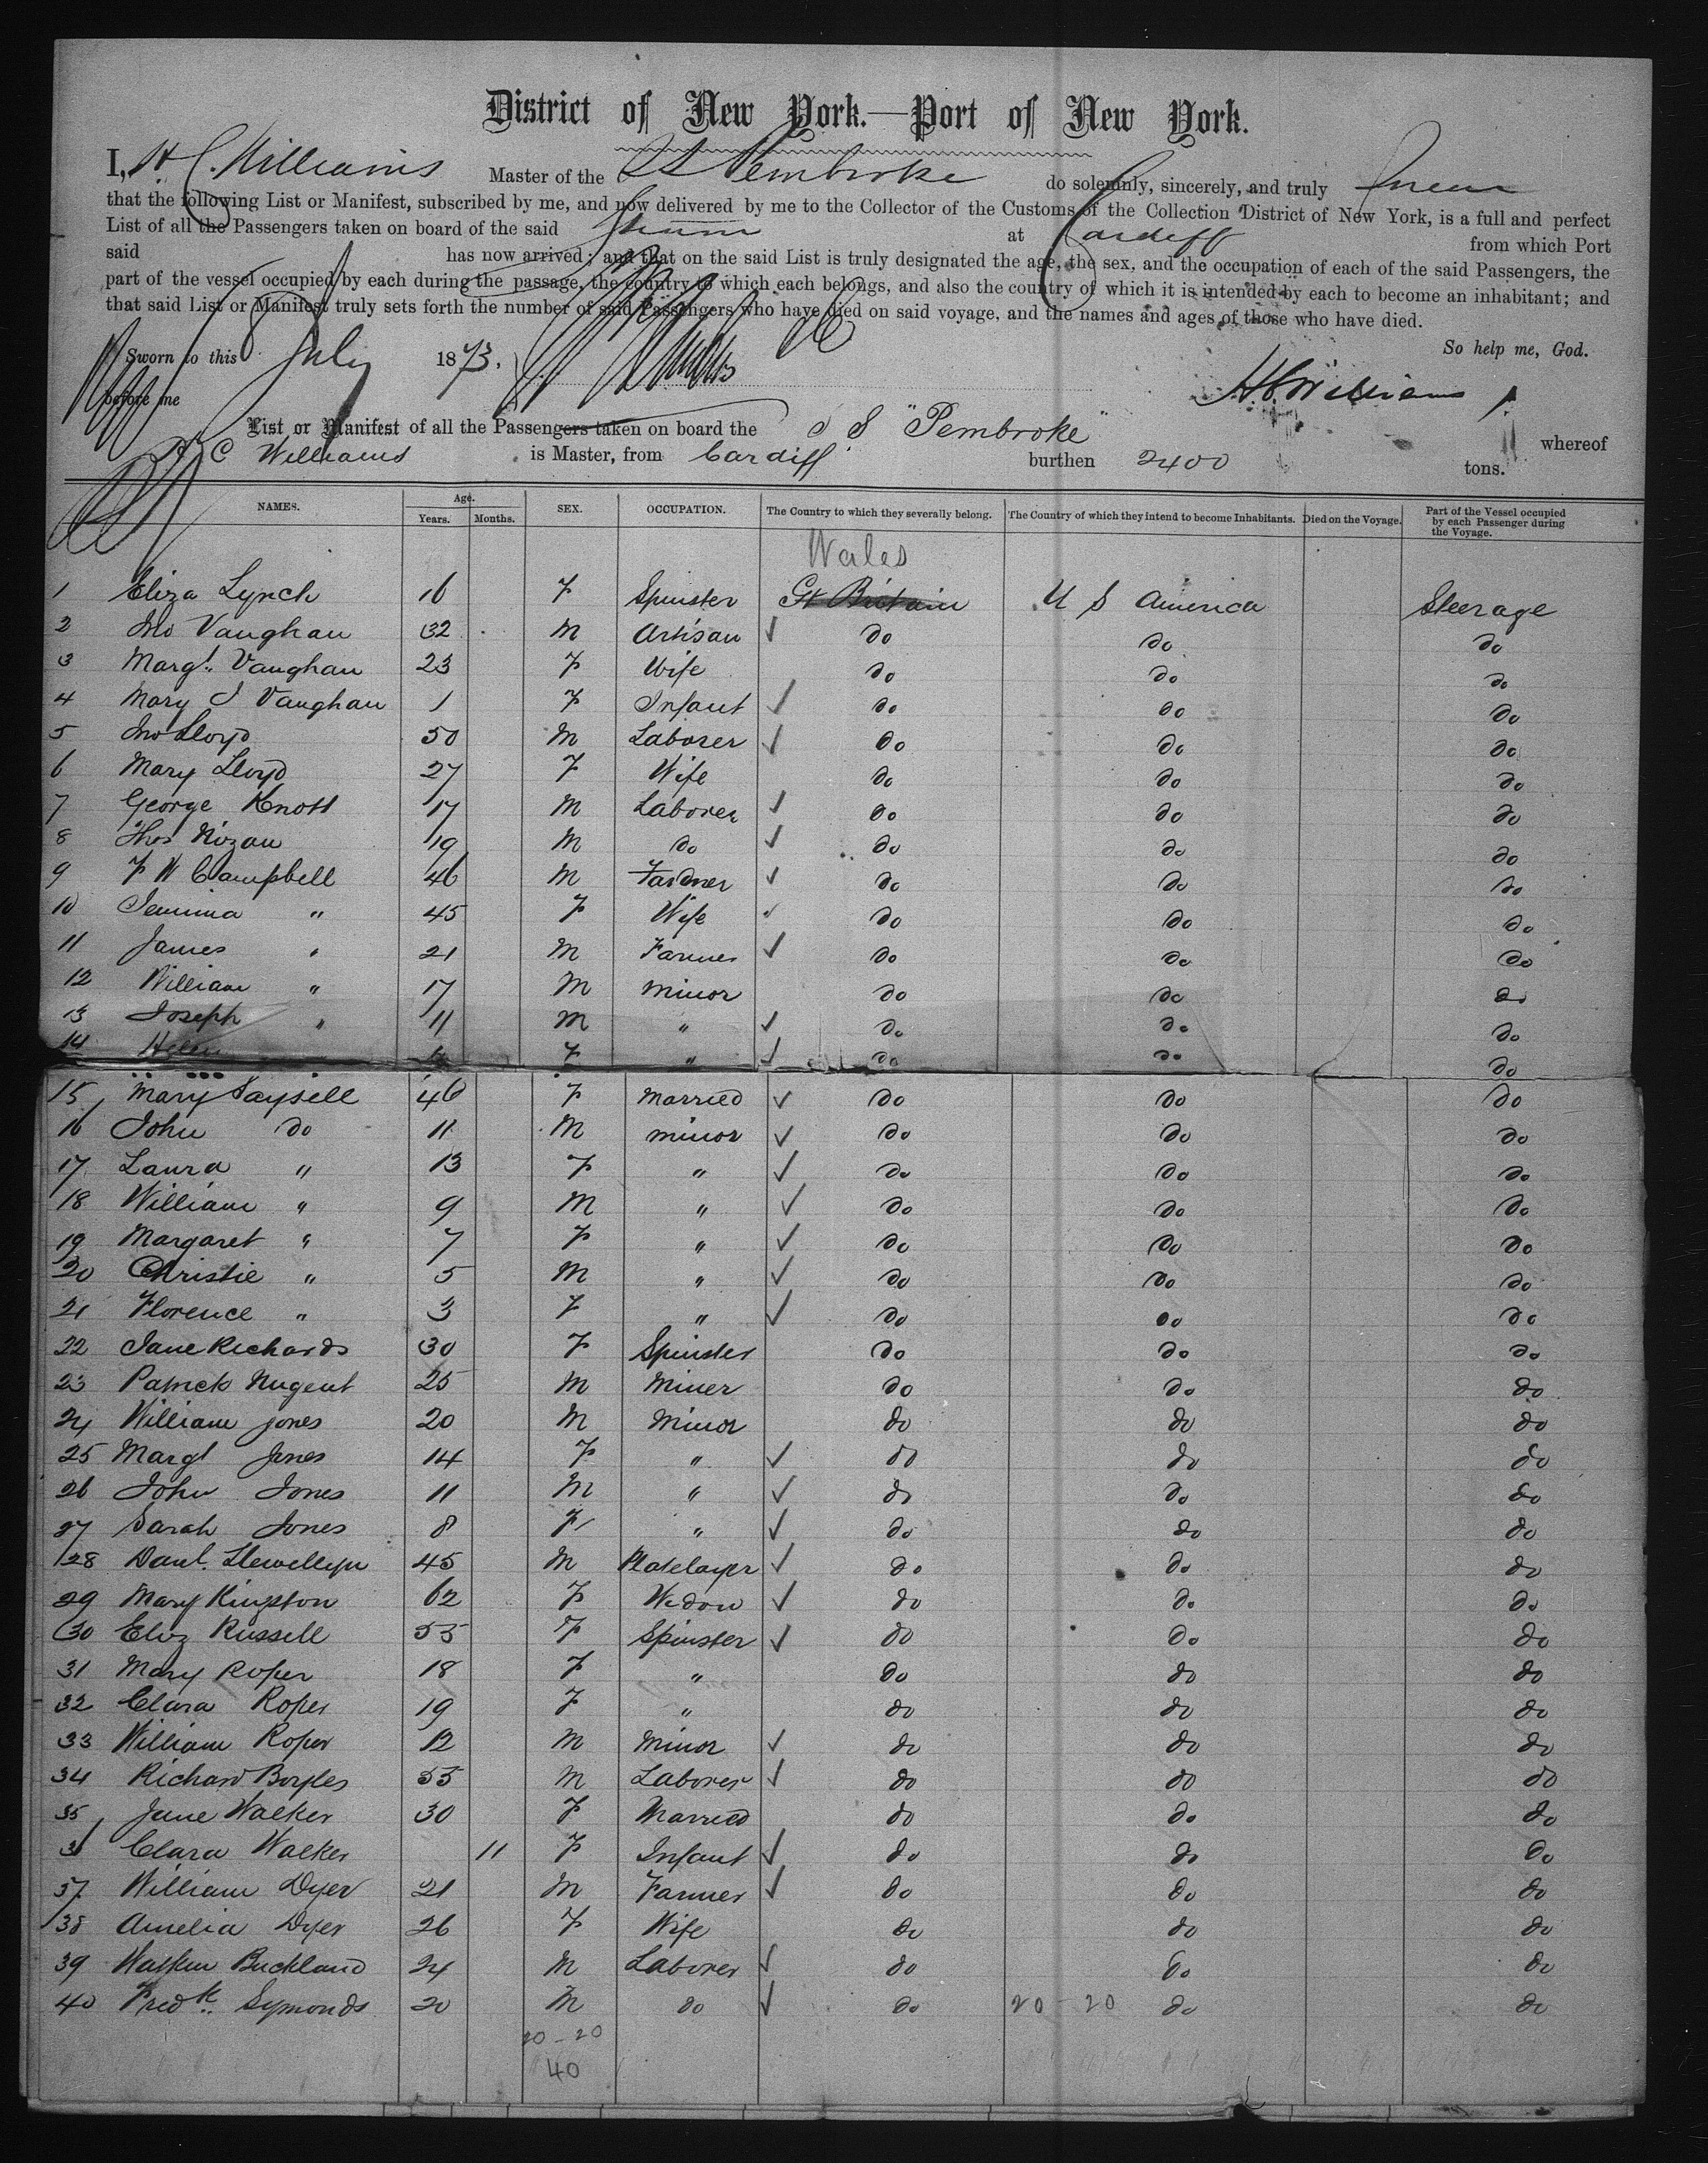 District of New York.—Port of New York.
I, H. C. Williams Master of the SS Pembroke do solemnly, sincerely, and truly Swear
that the following List or Manifest, subscribed by me, and now delivered by me to the Collector of the Customs of the Collection District of New York, is a full and perfect
List of all the Passengers taken on board of the said Steam at Cardiff from which Port
said has now arrived; and that on the said List is truly designated the age, the sex, and the occupation of each of the said Passengers, the
part of the vessel occupied by each during the passage, the country to which each belongs, and also the country of which it is intended by each to become an inhabitant; and
that said List or Manifest truly sets forth the number of said Passengers who have died on said voyage, and the names and ages of those who have died.
So help me, God.
Sworn to this 8 July 1873.
before me H C Williams
List or Manifest of all the Passengers taken on board the S S "Pembroke" whereof
H C Williams is Master, from Cardiff burthen 2400 tons.
NAMES. Age. Years. Months. SEX. OCCUPATION. The Country to which they severally belong. The Country of which they intend to become Inhabitants. Died on the Voyage. Part of the Vessel occupied by each Passenger during the Voyage.
Wales
1 Eliza Lynch 16 F Spinster Gt Britain U S America Steerage
2 Jno Vaughan 32 M Artisan ✓ do do do
3 Margt. Vaughan 23 F Wife do do do
4 Mary J Vaughan 1 F Infant ✓ do do do
5 Jno Lloyd 50 M Laborer ✓ do do do
6 Mary Lloyd 27 F Wife do do do
7 George Knott 17 M Laborer ✓ do do do
8 Thos Nizan 19 M do ✓ do do do
9 F W Campbell 46 M Gardner ✓ do do do
10 Jemima " 45 F Wife ✓ do do do
11 James " 21 M Farmer ✓ do do do
12 William " 17 M minor do do do
13 Joseph " 11 M " ✓ do do do
14 Helen F " ✓ do do do
15 Mary Saysell 46 F Married ✓ do do do
16 John do 11 M minor ✓ do do do
17 Laura " 13 F " ✓ do do do
18 William " 9 M " ✓ do do do
19 Margaret " 7 F " ✓ do do do
20 Christie " 5 M " ✓ do do do
21 Florence " 3 F " ✓ do do do
22 Jane Richards 30 F Spinster do do do
23 Patrick Nugent 25 M Miner do do do
24 William Jones 20 M Minor do do do
25 Margt Jones 14 F " ✓ do do do
26 John Jones 11 M " ✓ do do do
27 Sarah Jones 8 F " ✓ do do do
28 Danl. Llewellyn 45 M Platelayer ✓ do do do
29 Mary Kingston 62 F Widow ✓ do do do
30 Eliz Russell 55 F Spinster ✓ do do do
31 Mary Roper 18 F " do do do
32 Clara Roper 19 F " do do do
33 William Roper 12 M Minor ✓ do do do
34 Richard Boyles 55 M Laborer ✓ do do do
35 Jane Walker 30 F Married do do do
36 Clara Walker 11 F Infant ✓ do do do
37 William Dyer 21 M Farmer ✓ do do do
38 Amelia Dyer 26 F Wife do do do
39 Watkin Buckland 24 M Laborer ✓ do do do
40 Fredk. Symonds 20 M do ✓ do 20-20 do do
20-20
40